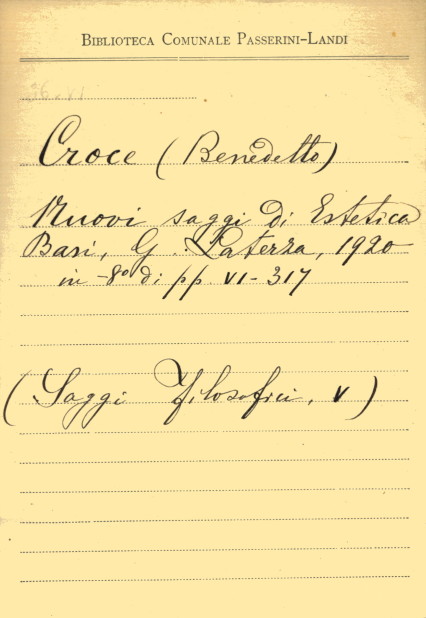 BIBLIOTECA COMUNALE PASSERINI-LANDI
Croce (Benedetto)
Nuovi saggi di Estetica
Bari, G. Laterza, 1920
in -8º di pp VI-317
(Saggi filosofici, V)